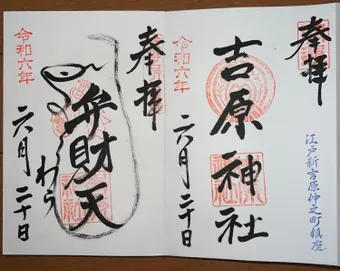 奉拝
江戸新吉原仲之町鎮座
吉原神社
令和六年
六月二十日
奉拝
弁財天
令和六年
六月二十日